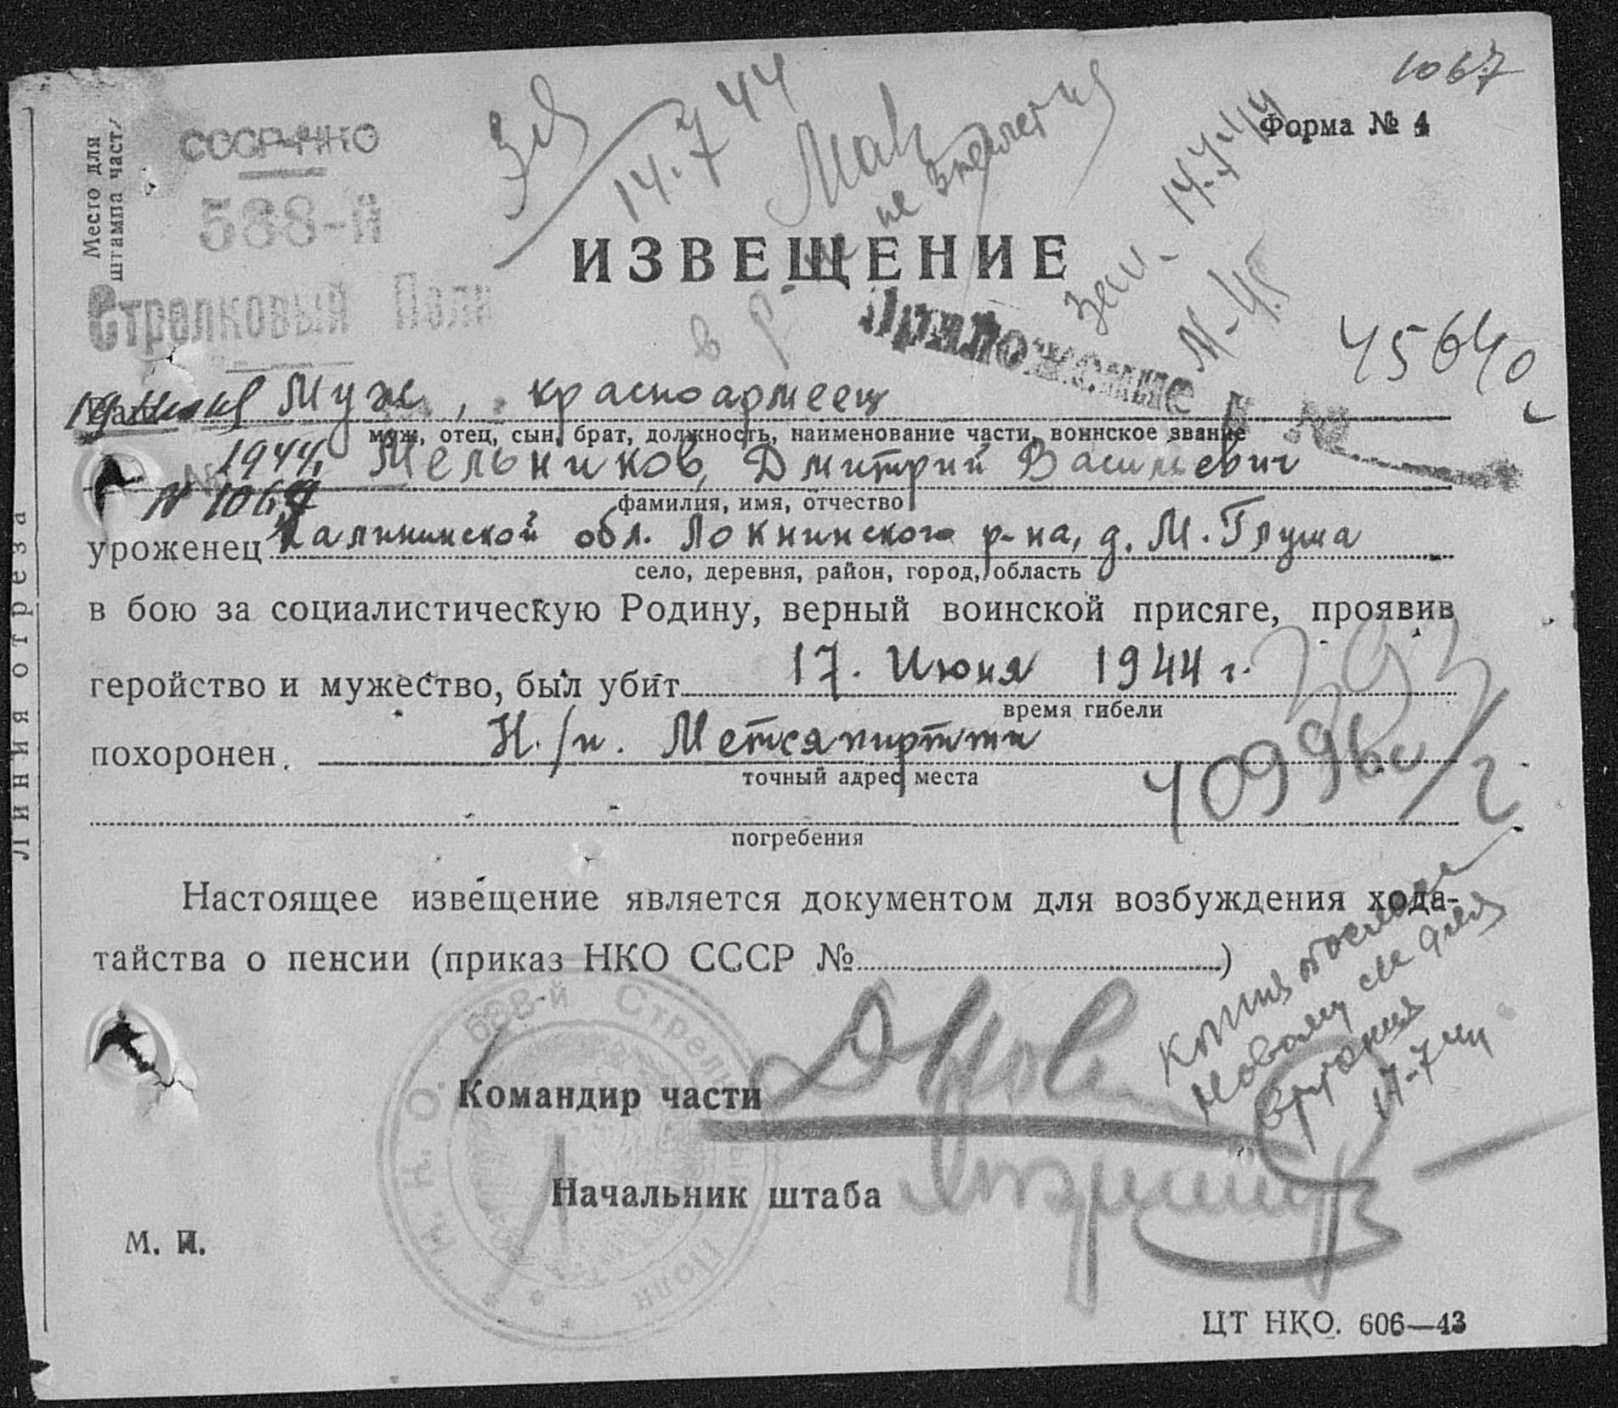 1067
Форма № 4
Место для
штампа част.
СССР-НКО
588-й
Стрелковый Полк
14.7 44
14.7.44
ИЗВЕЩЕНИЕ
Приложение к №
45640
Муж, красноармеец
муж, отец, сын, брат, должность, наименование части, воинское звание
1944. Мельников, Дмитрий Васильевич
N 1067
фамилия, имя, отчество
уроженец Калининской обл. Локнинского р-на, д. М. Глуша
село, деревня, район, город, область
в бою за социалистическую Родину, верный воинской присяге, проявив
геройство и мужество, был убит 17. Июня 1944 г.
время гибели
похоронен. Н./п. Метсяпиртти
точный адрес места
погребения
40996с
Настоящее извещение является документом для возбуждения хода-
тайства о пенсии (приказ НКО СССР № )
Копия
14-7
Командир части
Начальник штаба
Н. К. О. 588-й Стрелковый Полк
М. П.
ЦТ НКО. 606—43
Линия отреза